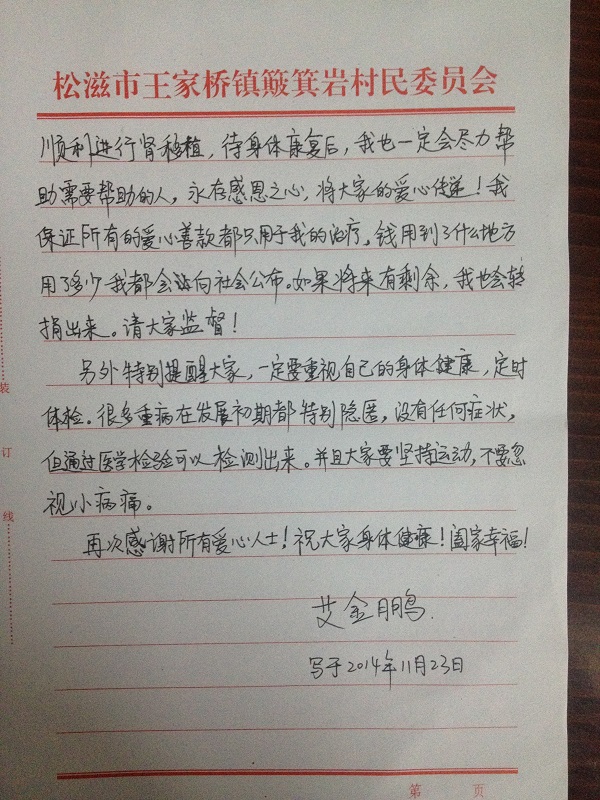 松滋市王家桥镇簸箕岩村民委员会
顺利进行肾移植，待身体康复后，我也一定会尽力帮
助需要帮助的人，永存感恩之心，将大家的爱心传递！我
保证所有的爱心善款都只用于我的治疗。钱用到了什么地方
用了多少我都会向社会公布。如果将来有剩余，我也会转
捐出来。请大家监督！
另外特别提醒大家，一定要重视自己的身体健康，定时
体检。很多重病在发展初期都特别隐匿，没有任何症状，
但通过医学检验可以检测出来。并且大家要坚持运动，不要忽
视小病痛。
再次感谢所有爱心人士！祝大家身体健康！阖家幸福！
艾金鹏
写于2014年11月23日
装
订
线
第 页